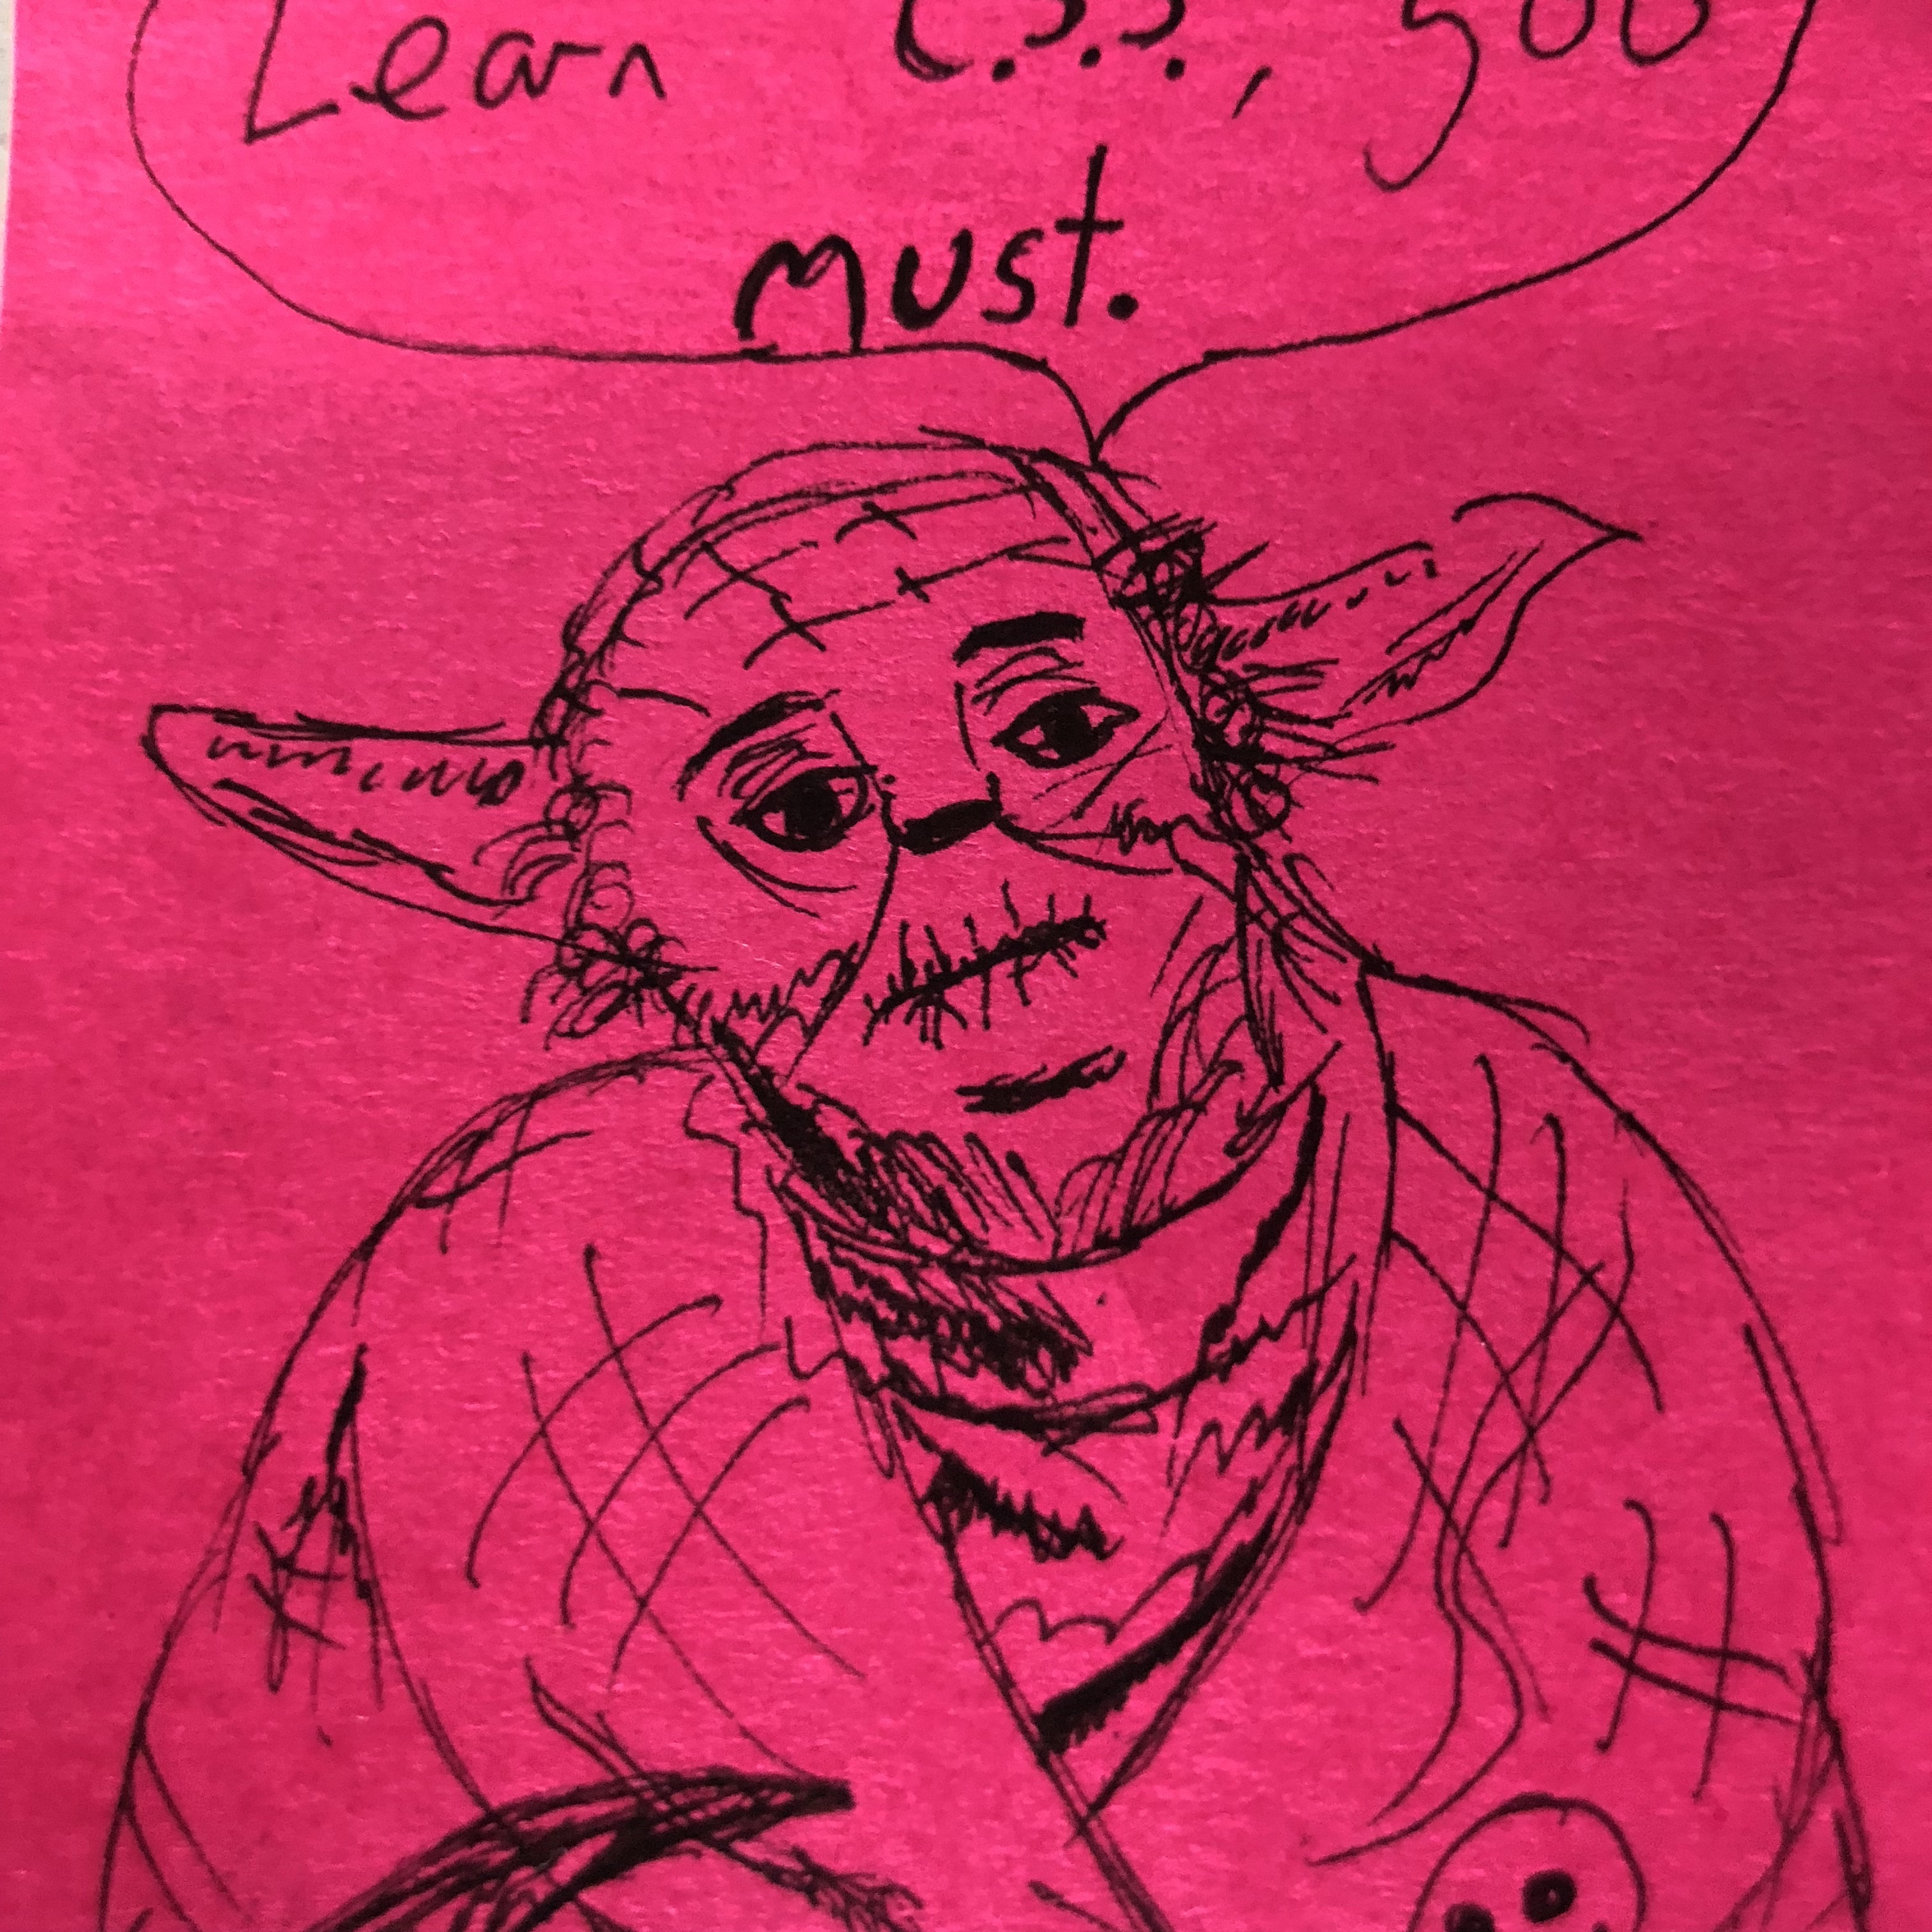 Learn C.S.S., you
must.